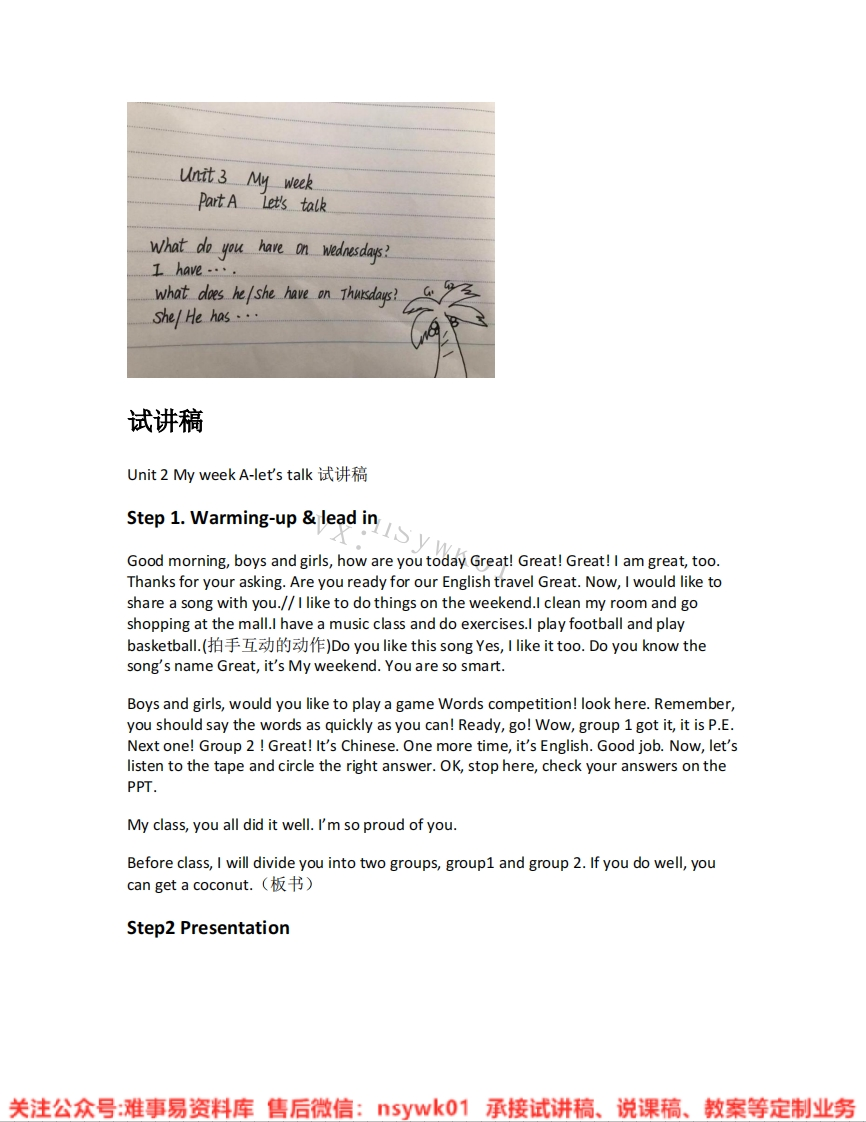 Unit 3 My week
Part A Let's talk
What do you have on Wednesdays?
I have ····
What does he/she have on Thursdays?
She/He has ···
G1 G2
试讲稿
Unit 2 My week A-let’s talk 试讲稿
Step 1. Warming-up & lead in
VX:nsywk01
Good morning, boys and girls, how are you today Great! Great! Great! I am great, too.
Thanks for your asking. Are you ready for our English travel Great. Now, I would like to
share a song with you.// I like to do things on the weekend.I clean my room and go
shopping at the mall.I have a music class and do exercises.I play football and play
basketball.(拍手互动的动作)Do you like this song Yes, I like it too. Do you know the
song’s name Great, it’s My weekend. You are so smart.
Boys and girls, would you like to play a game Words competition! look here. Remember,
you should say the words as quickly as you can! Ready, go! Wow, group 1 got it, it is P.E.
Next one! Group 2 ! Great! It’s Chinese. One more time, it’s English. Good job. Now, let’s
listen to the tape and circle the right answer. OK, stop here, check your answers on the
PPT.
My class, you all did it well. I’m so proud of you.
Before class, I will divide you into two groups, group1 and group 2. If you do well, you
can get a coconut.（板书）
Step2 Presentation
关注公众号:难事易资料库 售后微信：nsywk01 承接试讲稿、说课稿、教案等定制业务